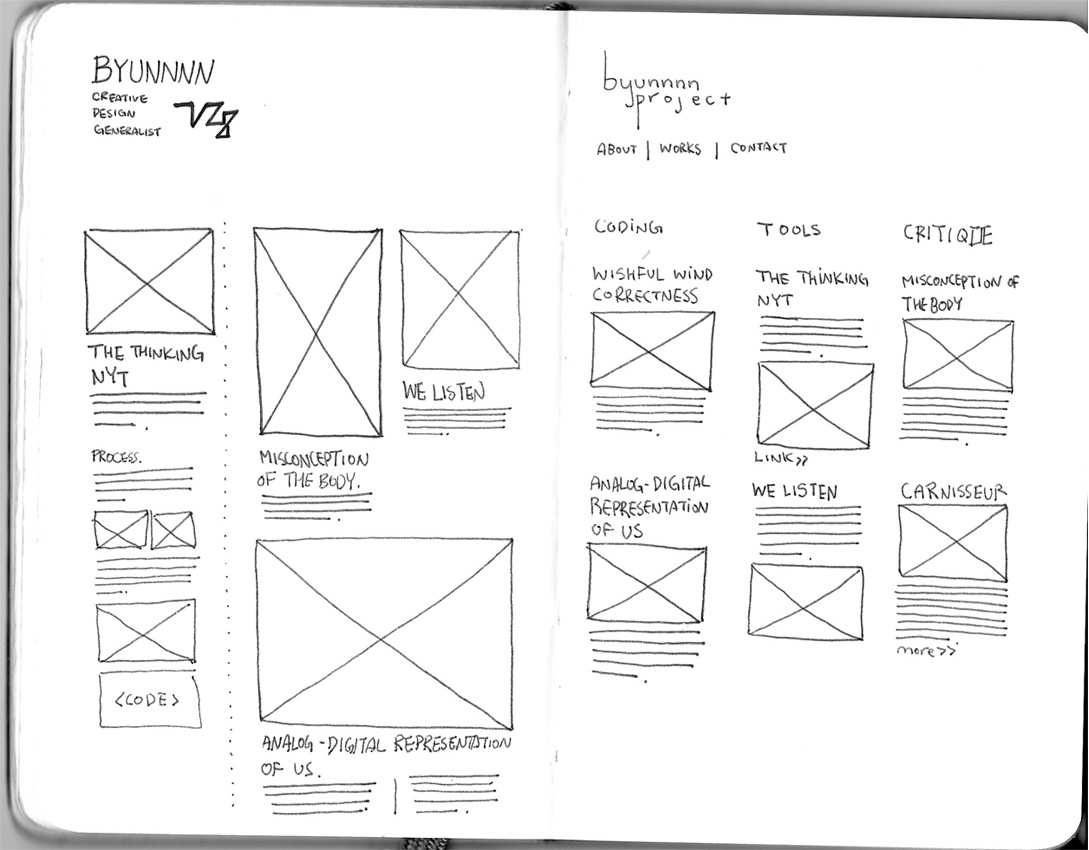 BYUNNNN
CREATIVE
DESIGN
GENERALIST
THE THINKING
NYT
PROCESS.
<CODE>
MISCONCEPTION
OF THE BODY.
WE LISTEN
ANALOG-DIGITAL REPRESENTATION
OF US.
byunnnn
project
ABOUT | WORKS | CONTACT
CODING
WISHFUL WIND
CORRECTNESS
ANALOG-DIGITAL
REPRESENTATION
OF US
TOOLS
THE THINKING
NYT
LINK>>
WE LISTEN
CRITIQUE
MISCONCEPTION OF
THE BODY
CARNISSEUR
more>>